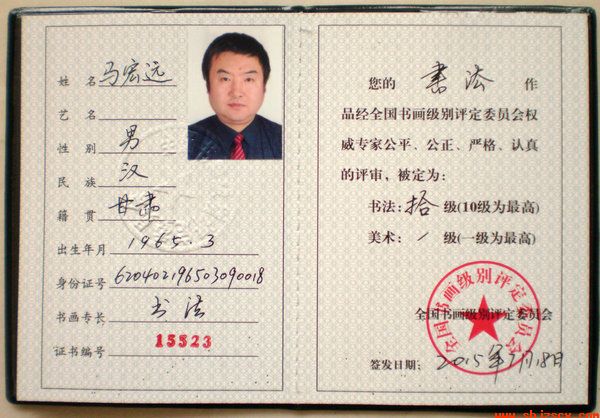 姓 名 马宏远
艺 名
性 别 男
民 族 汉
籍 贯 甘肃
出生年月 1965.3
身份证号 620402196503090018
书画专长 书法
证书编号 15523
您的 书法 作
品经全国书画级别评定委员会权
威专家公平、公正、严格、认真
的评审，被定为：
书法：拾级(10级为最高)
美术：/ 级(一级为最高)
全国书画级别评定委员会
全国书画级别评定委员会
签发日期：2015年7月18日
www.shjzscx.com